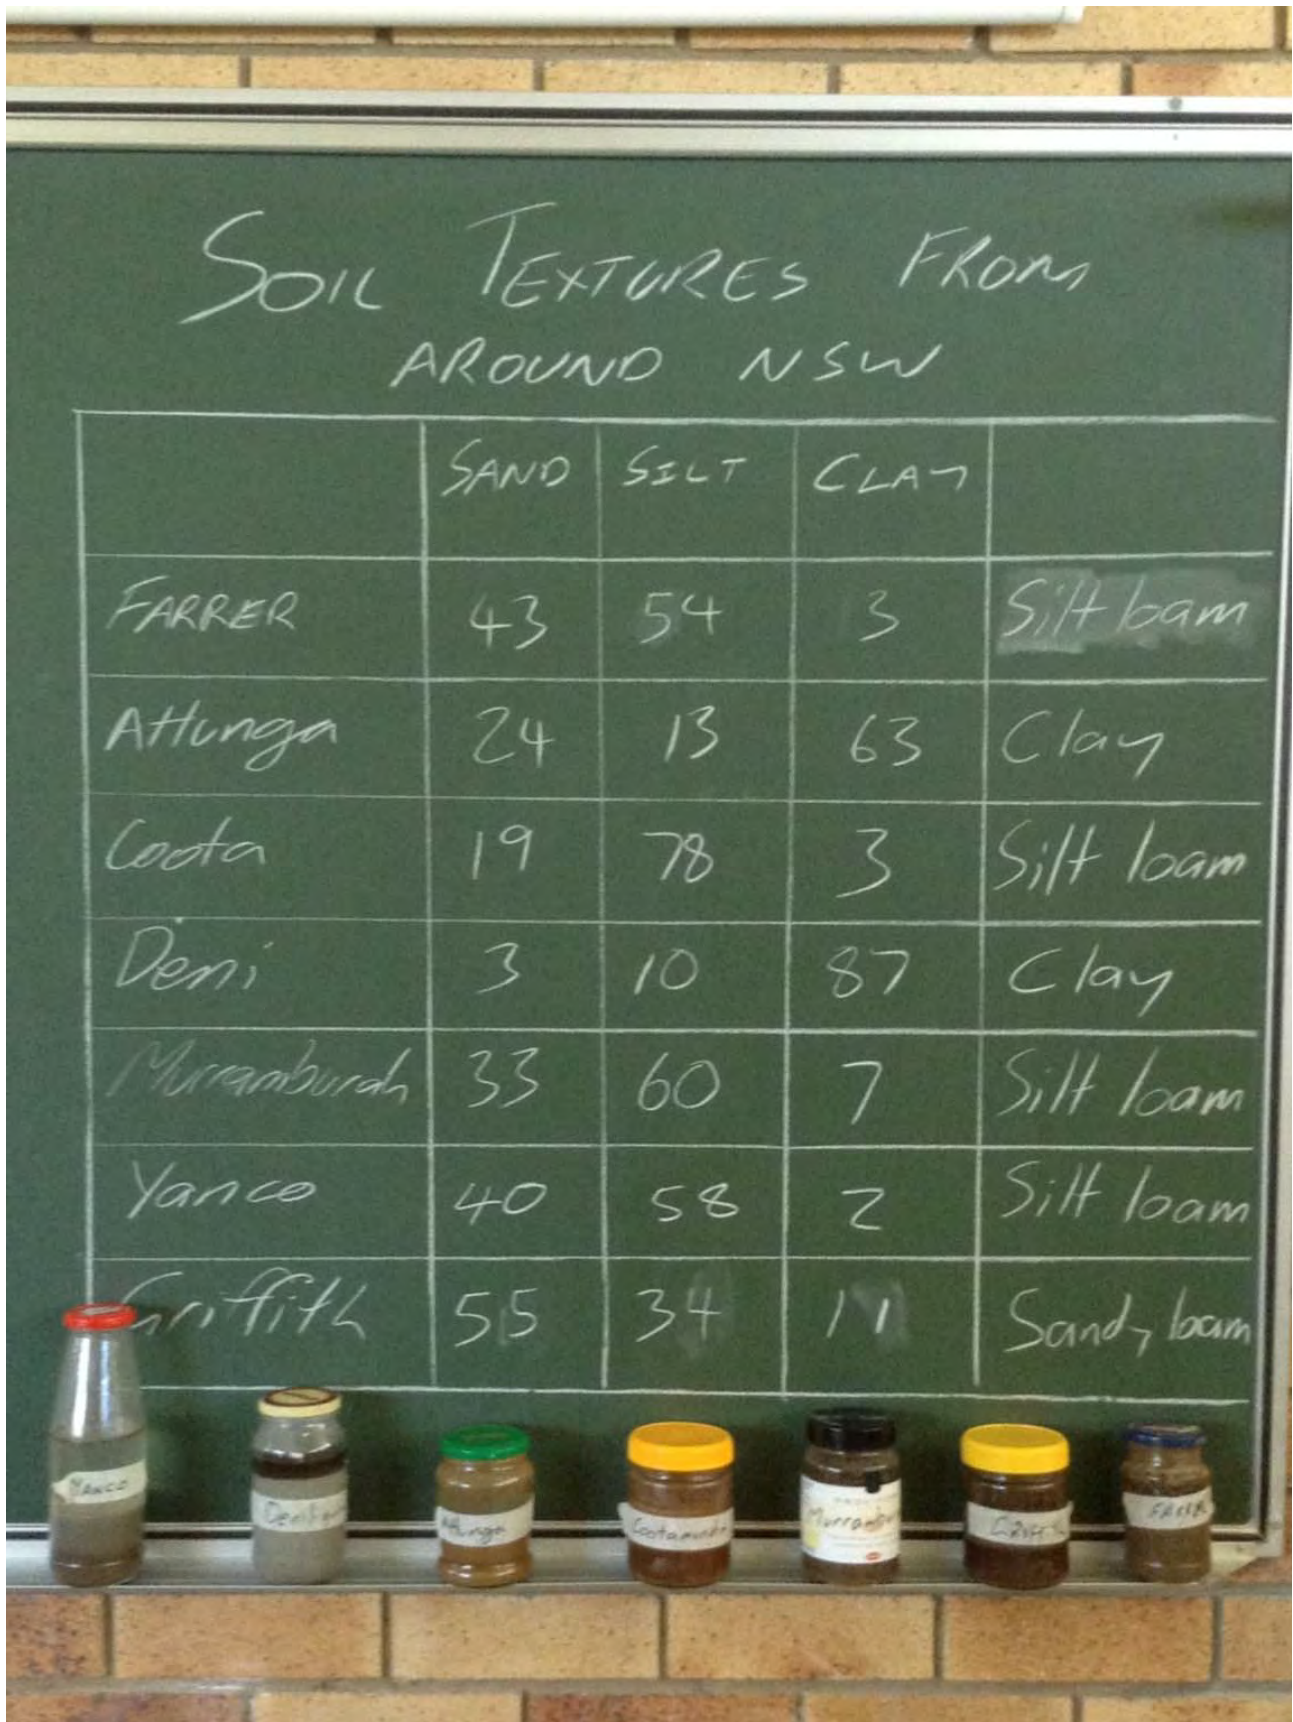 SOIL TEXTURES FROM
AROUND NSW
SAND SILT CLAY
FARRER 43 54 3 Silt loam
Attunga 24 13 63 Clay
Coota 19 78 3 Silt loam
Deni 3 10 87 Clay
Murramburah 33 60 7 Silt loam
Yanco 40 58 2 Silt loam
Griffith 55 34 11 Sandy loam
YANCO
Attunga
Cootamundra